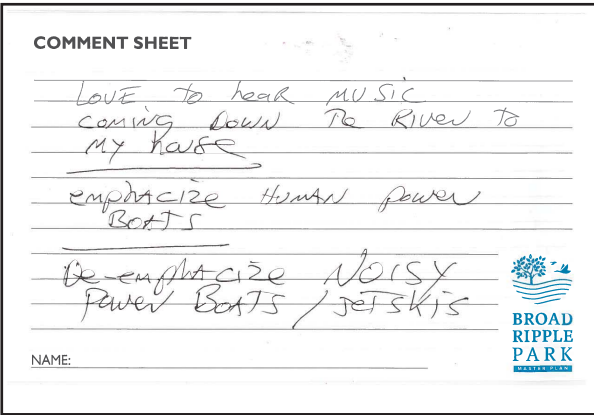 COMMENT SHEET
LOVE to heaR MUSIC
COMING DOWN The RIVER TO
MY house
emphACIZE HUMAN power
BOATS
De-emphACIZE NOISY
Power BOATS / JETSKIS
BROAD
RIPPLE
PARK
MASTER PLAN
NAME: